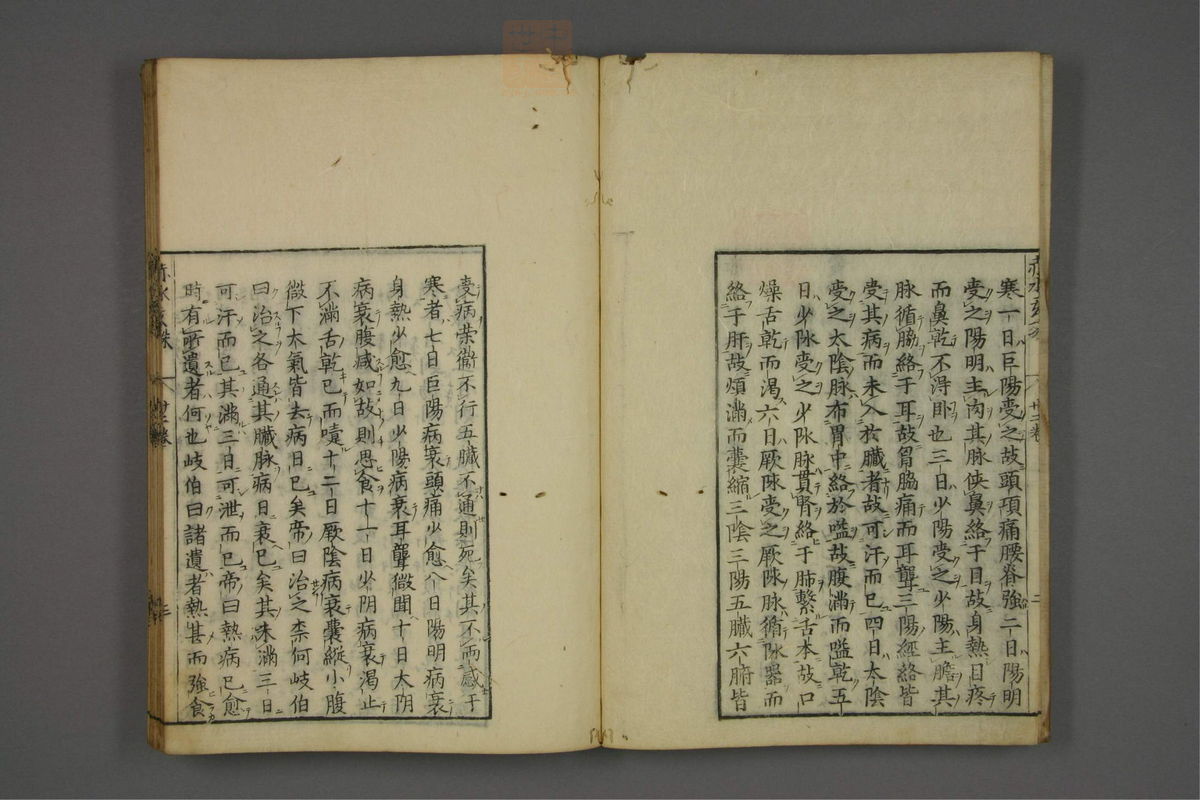 寒一日巨陽受之故頭項痛腰脊強二日陽明
受之陽明主肉其脉侠鼻絡于目故身熱目疼
而鼻乾不得卧也三日少陽受之少陽主膽其
脉循脇絡于耳故胷脇痛而耳聾三陽經絡皆
受其病而未入於臓者故可汗而已四日太陰
受之太陰脉布胃中絡於嗌故腹滿而嗌乾五
日少陰受之少陰脉貫腎絡于肺繫舌本故口
燥舌乾而渴六日厥陰受之厥陰脉循陰器而
絡于肝故煩滿而囊縮三陰三陽五臓六腑皆
受病荣衞不行五臓不通則死矣其不兩感于
寒者七日巨陽病衰頭痛少愈八日陽明病衰
身熱少愈九日少陽病衰耳聾微聞十日太阴
病衰腹减如故則思食十一日少阴病衰渴止
不滿舌乾已而嚏十二日厥陰病衰囊縱小腹
微下大氣皆去病日已矣帝曰治之柰何岐伯
曰治之各通其臓脉病日衰已矣其未滿三日
可汗而已其滿三日可泄而已帝曰熱病已愈
時有所遺者何也岐伯曰諸遺者熱甚而強食